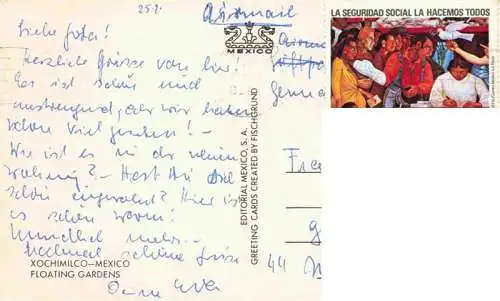 25.1.
Airmail
Liebe Juta!
Herzliche Grüsse von hier!
Es ist schön und
anstrengend, aber wir haben
schon viel gesehen! –
Wie ist es in der neuen
Wohnung? – Hast Du Dich
schön eingewöhnt? Hier ist
es schön warm!
Mündlich mehr. –
Nochmal schöne Grüsse
Deine
XOCHIMILCO—MEXICO
FLOATING GARDENS
EDITORIAL MEXICO, S. A.
GREETING CARDS CREATED BY FISCHGRUND
MEXICO
Germa
44
LA SEGURIDAD SOCIAL LA HACEMOS TODOS